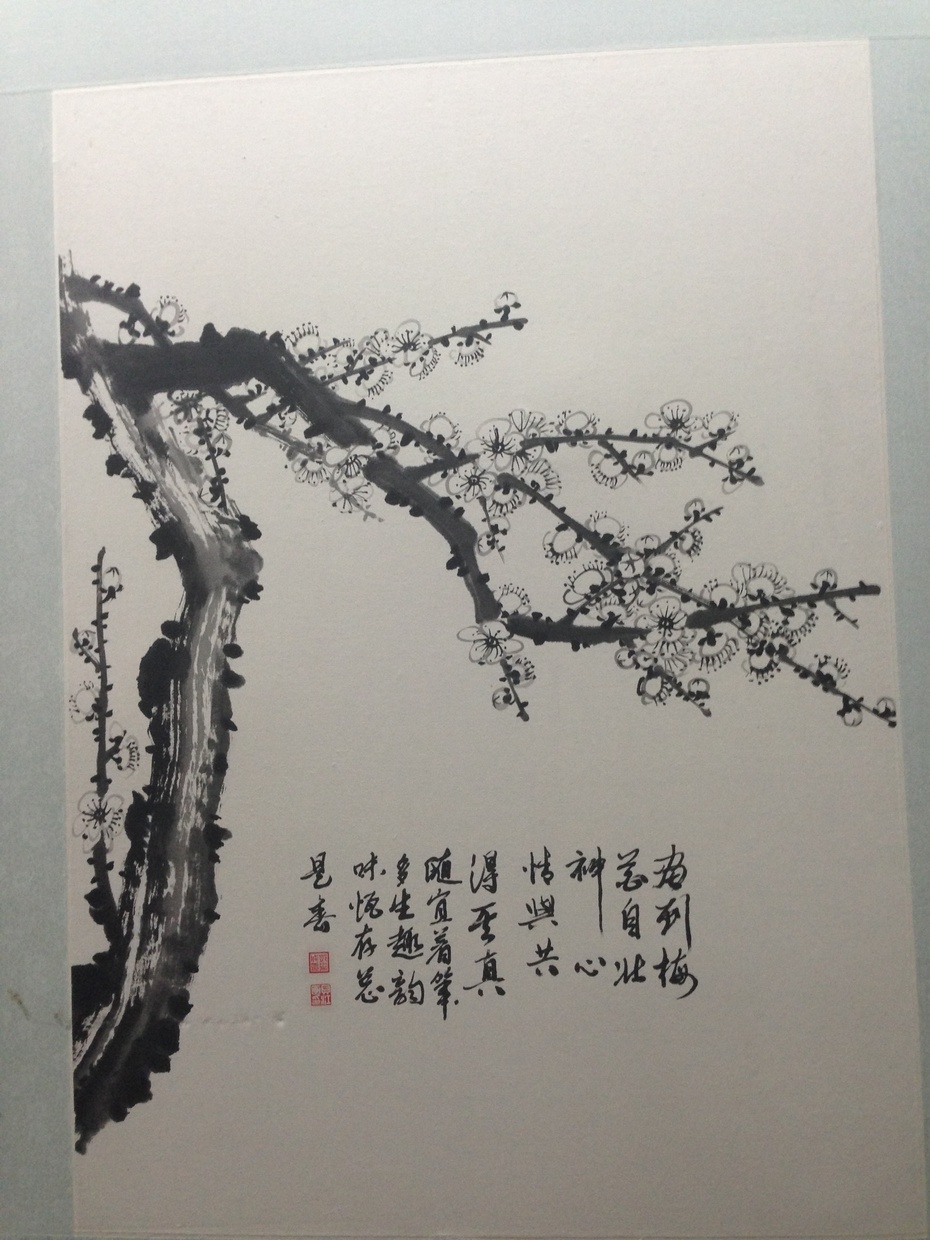 画到梅
花自壮
神心
情与共
得至真
随宜着笔
多生趣韵
味恆存总
是春